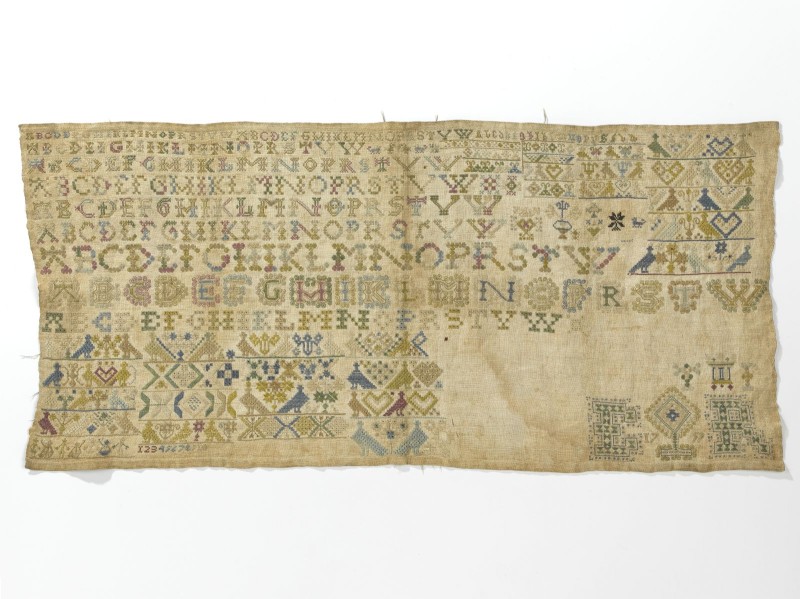 ABCDEFGHIKLMNOPRSTVW ABCDEFGHIKLMNOPRSTVW
ABCDEFGHIKLMNOPRSTVW
ABCDEFGHIKLMNOPRSTVW
ABCDEFGHIKLMNOPRSTVW
ABCDEFGHIKLMNOPRSTVW
ABCDEFGHIKLMNOPRSTVW
ABCDEFGHIKLMNOPRSTVW
ABCDEFGHIKLMNOPRSTW
EFGHIKLMN PRSTVW
12345678